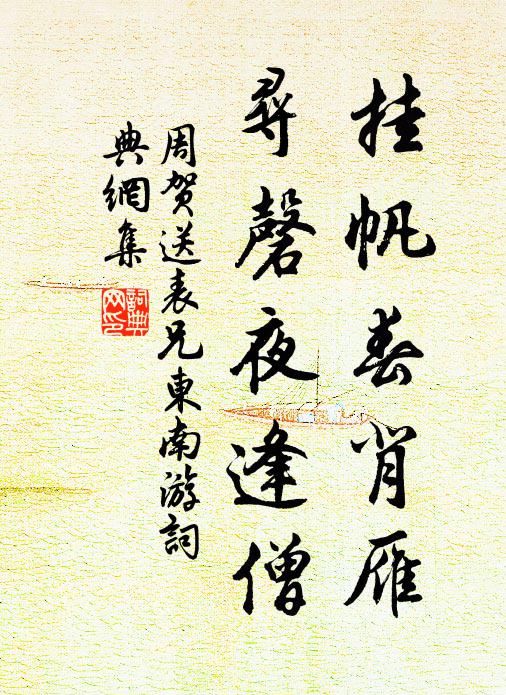 挂帆春背雁
尋磬夜逢僧
周賀送表兄東南游詞
典網集
詞典網印